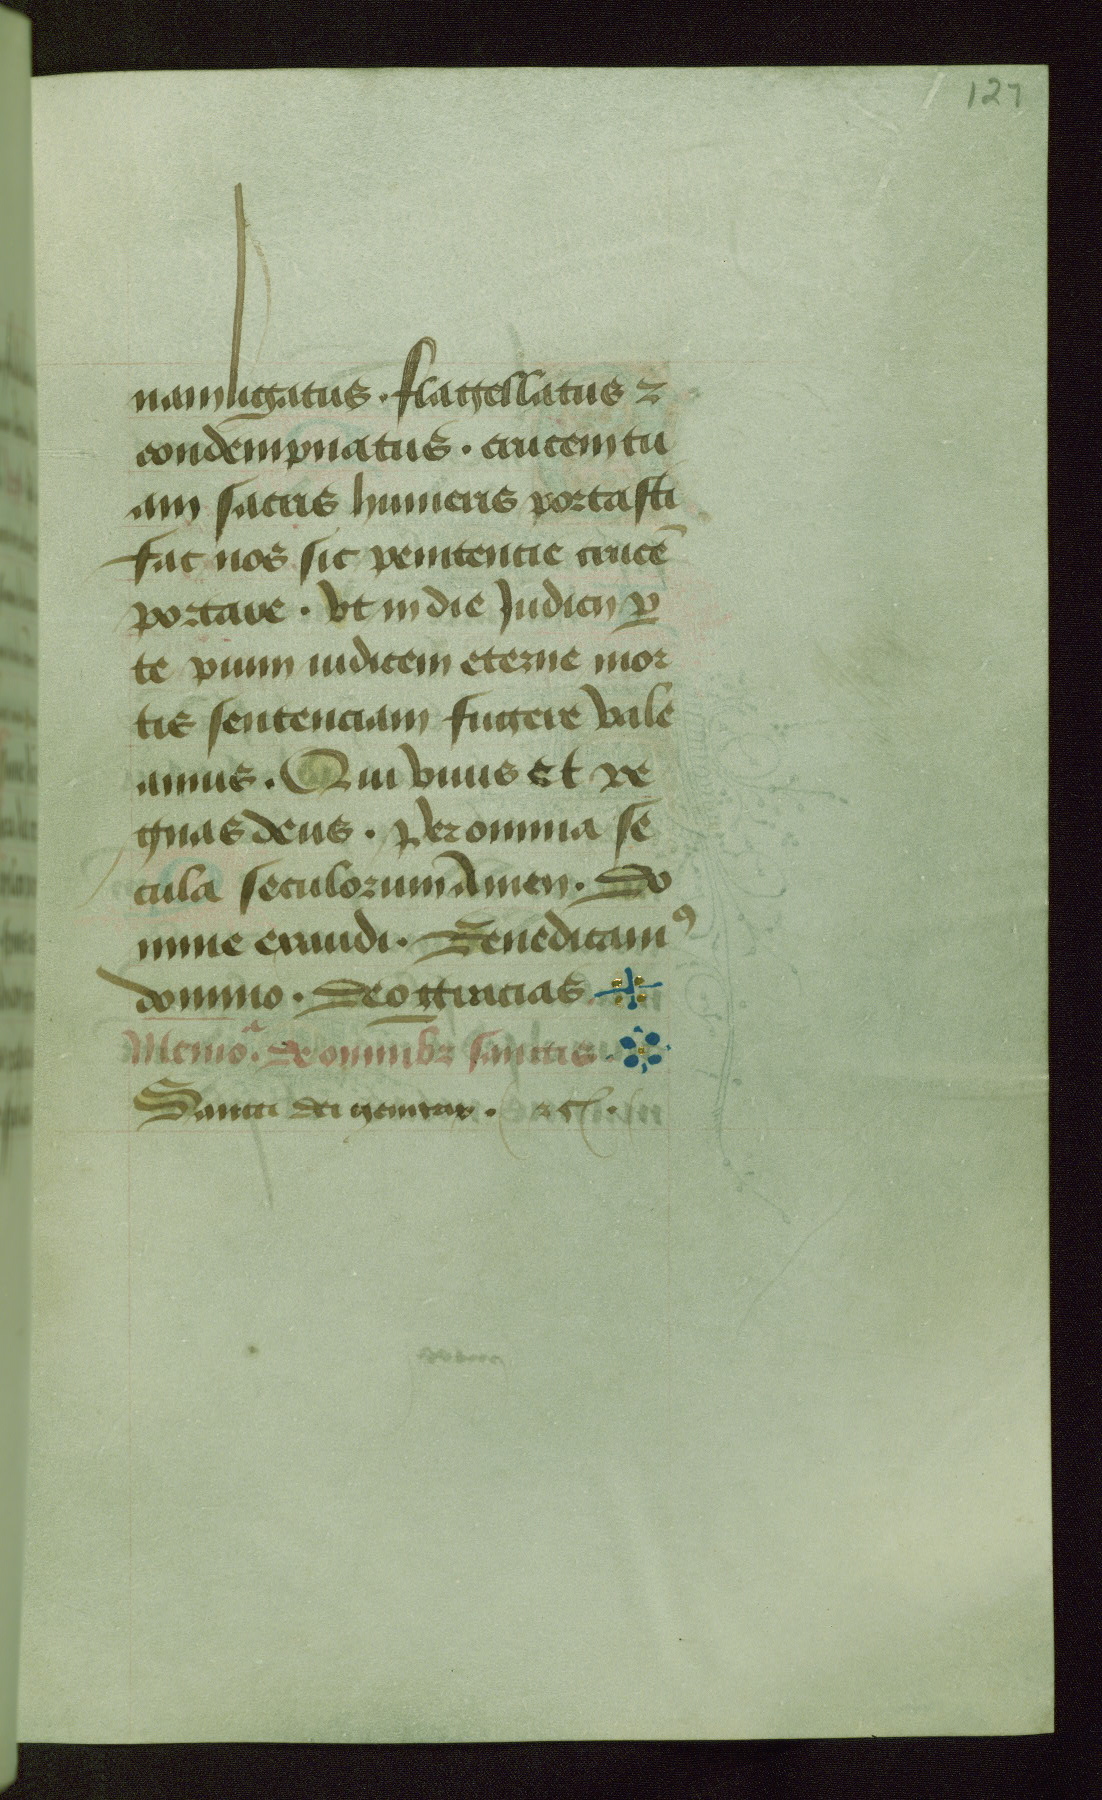 127
nam ligatus . flagellatus ⁊
condempnatus . crucem tu
am sacris humeris portasti
fac nos sic penitencie crucē
portare . vt in die Judicij ꝑ
te pium iudicem eterne mor
tis sentenciam fugere vale
amus . Qui viuis et re
gnas deus . Per omnia se
cula seculorum Amen . Do
mine exaudi . Benedicamꝰ
domino . Deo gracias
Memoᵃ . de omnibꝫ sanctis .
Sancti dei genitrix .